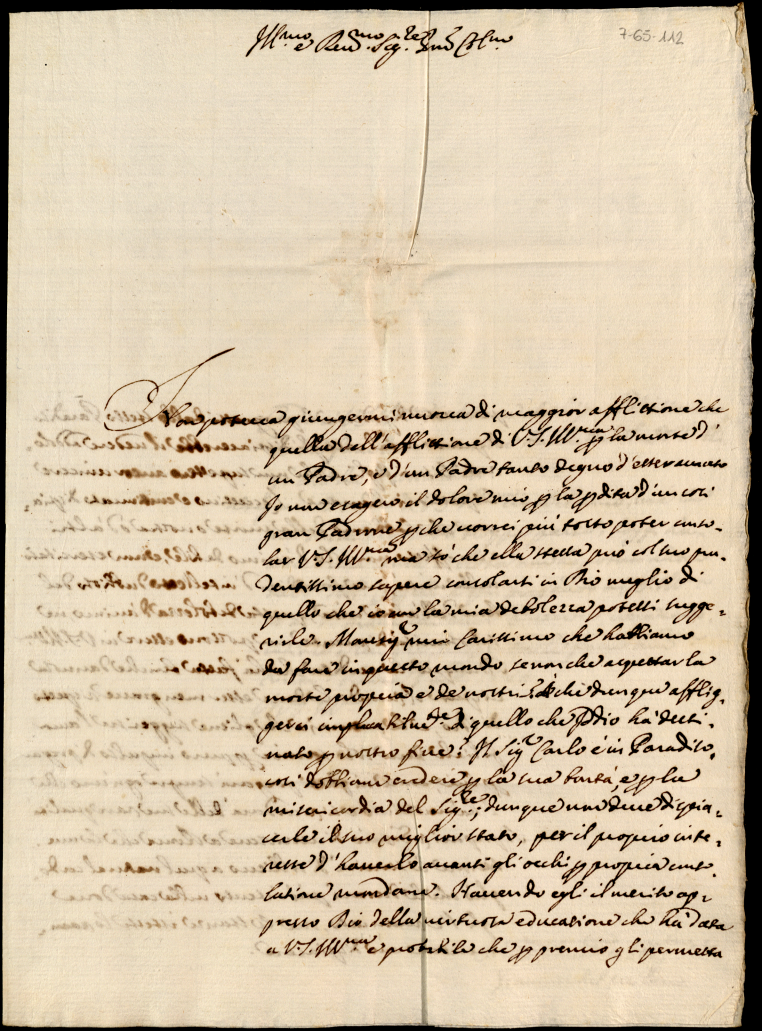 Ill.mo e Rev.mo Sig.re Pn̄ Col.mo
7-65-112
Non poteua giungermi nuoua di maggior afflittione che
quella dell'afflittione di V.S. Ill.ma p la morte d'
un Padre, e d'un Padre tanto degno d'esser amato
Io non esagero il dolore mio p la pdita d'un così
gran Padrone p che vorrei più tosto poter conso=
lar V.S. Ill.ma mà sò che ella stessa può col suo pru=
dentissimo sapere consolarsi in Dio meglio di
quello che io con la mia debolezza potessi sugge=
rirle. Monsig.r mio Carissimo che habbiamo
da fare in questo mondo, se non che aspettar la
morte propria e de nostri? à che dunque afflig=
gerci di quello che Iddio hà desti=
nato p nostro fine? Il Sig.r Carlo è in Paradiso,
così dobbiam credere p la sua bontà, e p la
misericordia del Sig.re; dunque non deue dispia=
cerle il suo miglior stato, per il proprio inte=
resse d'hauerlo auanti gli occhi p propria conso=
latione mondana. Hauendo egli il merito ap=
presso Dio della uirtuosa educatione che hà data
a V.S. Ill.ma è probabile che p premio gli permetta